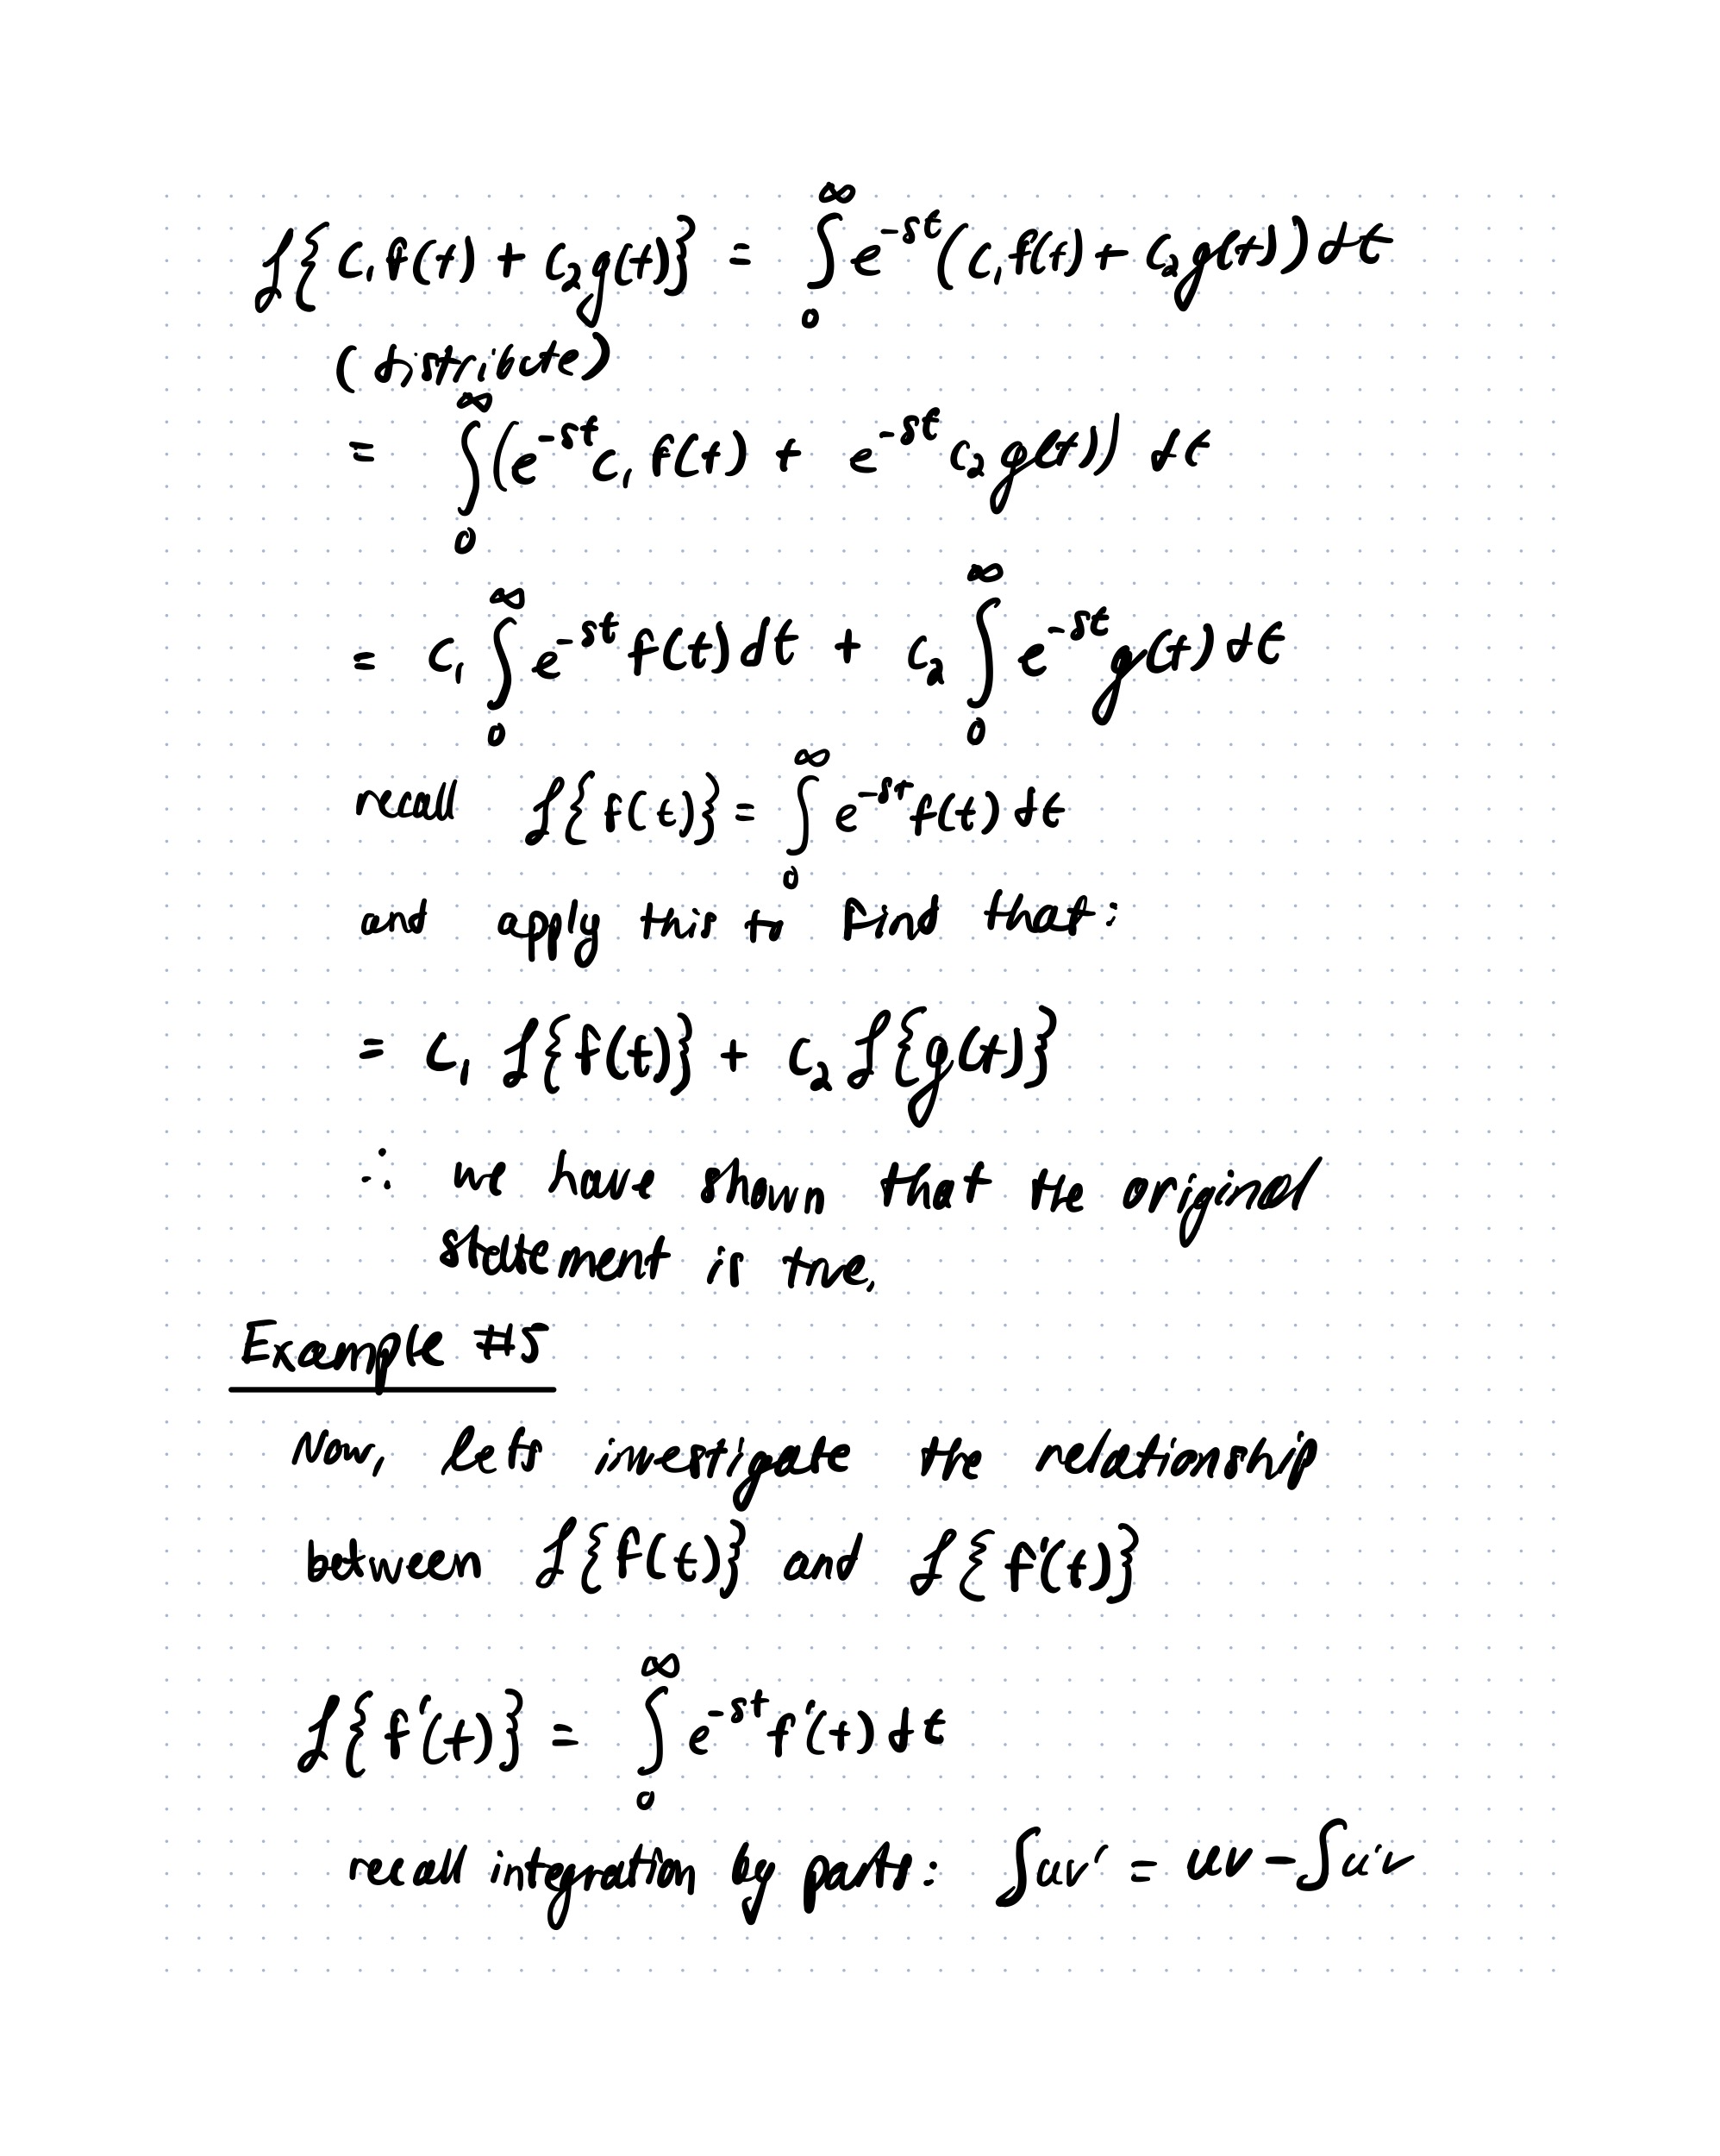 ℒ{c₁f(t) + c₂g(t)} = ∫₀^∞ e^{-st}(c₁f(t) + c₂g(t)) dt
(distribute)
= ∫₀^∞ (e^{-st}c₁f(t) + e^{-st}c₂g(t)) dt
= c₁ ∫₀^∞ e^{-st}f(t)dt + c₂ ∫₀^∞ e^{-st}g(t)dt
recall ℒ{f(t)} = ∫₀^∞ e^{-st}f(t) dt
and apply this to find that:
= c₁ ℒ{f(t)} + c₂ ℒ{g(t)}
∴ we have shown that the original
statement is true.
Example #5
Now, lets investigate the relationship
between ℒ{f(t)} and ℒ{f'(t)}
ℒ{f'(t)} = ∫₀^∞ e^{-st}f'(t) dt
recall integration by parts: ∫uv' = uv - ∫u'v